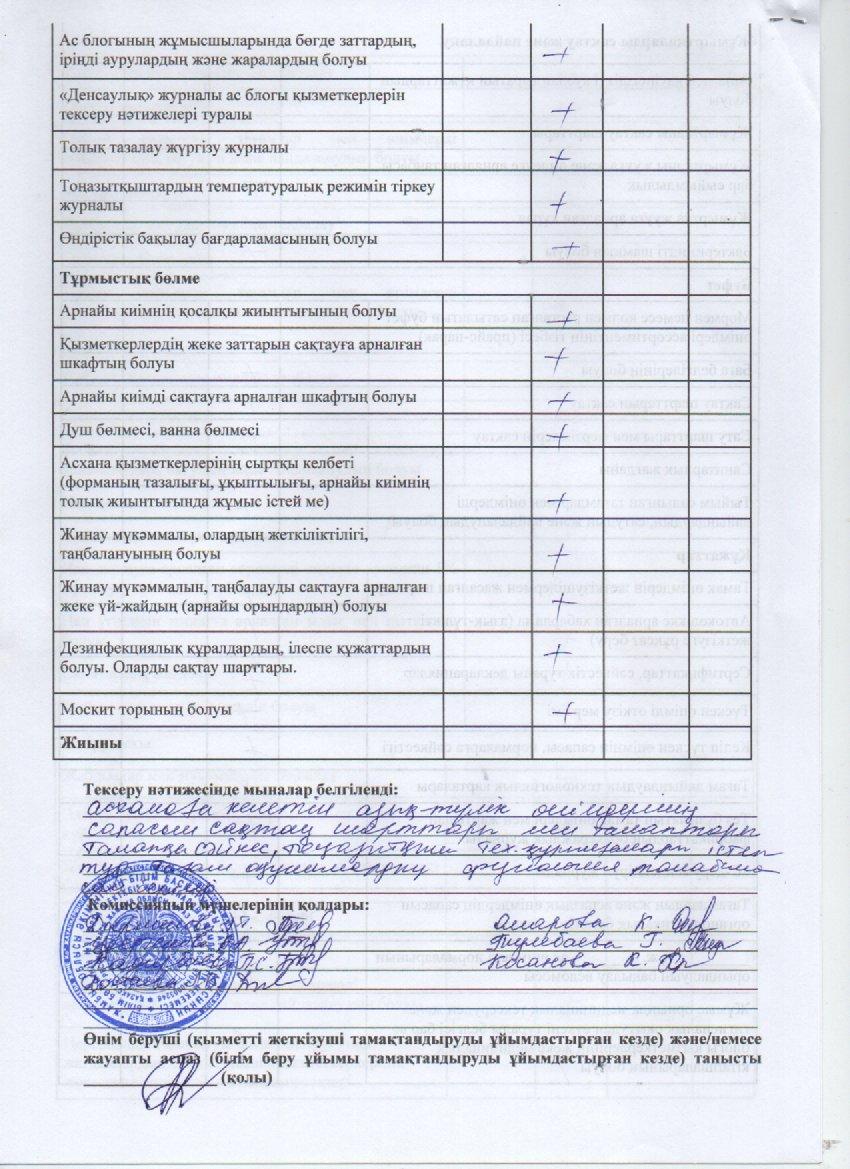 Ас блогының жұмысшыларында бөгде заттардың,
іріңді аурулардың және жаралардың болуы +
«Денсаулық» журналы ас блогы қызметкерлерін
тексеру нәтижелері туралы +
Толық тазалау жүргізу журналы +
Тоңазытқыштардың температуралық режимін тіркеу
журналы +
Өндірістік бақылау бағдарламасының болуы +
Тұрмыстық бөлме
Арнайы киімнің қосалқы жиынтығының болуы +
Қызметкерлердің жеке заттарын сақтауға арналған
шкафтың болуы +
Арнайы киімді сақтауға арналған шкафтың болуы +
Душ бөлмесі, ванна бөлмесі +
Асхана қызметкерлерінің сыртқы келбеті
(форманың тазалығы, ұқыптылығы, арнайы киімнің
толық жиынтығында жұмыс істей ме) +
Жинау мүкәммалы, олардың жеткіліктілігі,
таңбалануының болуы +
Жинау мүкәммалын, таңбалауды сақтауға арналған
жеке үй-жайдың (арнайы орындардың) болуы +
Дезинфекциялық құралдардың, ілеспе құжаттардың
болуы. Оларды сақтау шарттары. +
Москит торының болуы +
Жиыны
Тексеру нәтижесінде мыналар белгіленді:
асханаға келетін азық-түлік өнімдерінің
сапасын сақтау шарттары мен талаптары
талапқа сәйкес, тоңазытқыш тех. құрылғылары істеп
тұр. талабына
Комиссияның мүшелерінің қолдары:
Омарова К.
Тулебаева Г.
Косанова К.
Өнім беруші (қызметті жеткізуші тамақтандыруды ұйымдастырған кезде) және/немесе
жауапты аспаз (білім беру ұйымы тамақтандыруды ұйымдастырған кезде) танысты
(қолы)